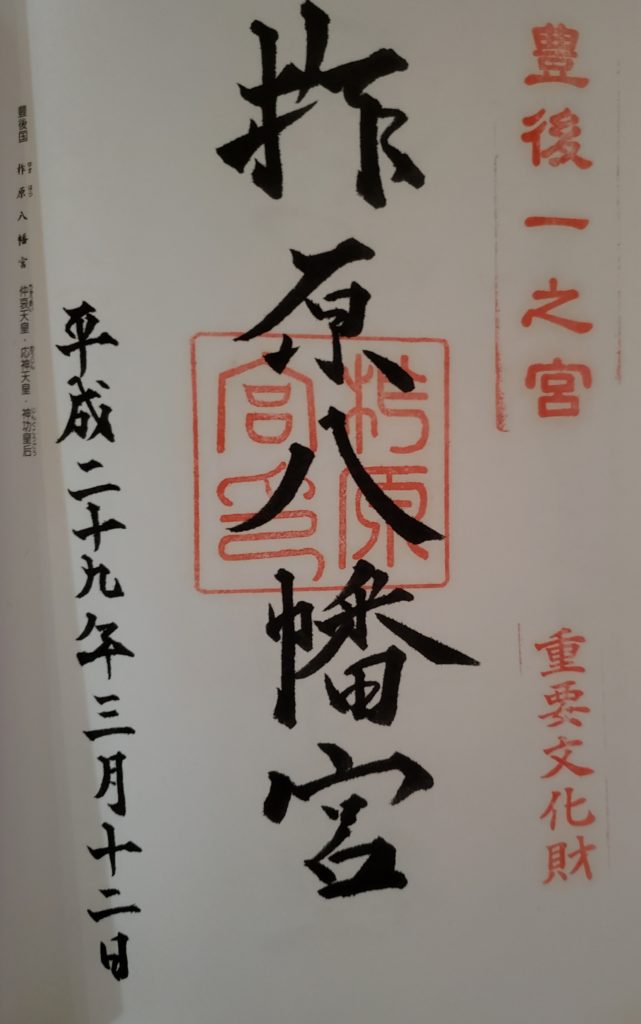 豊後一之宮
重要文化財
柞原八幡宮
柞原
宮印
平成二十九年三月十二日
豊後国 柞原八幡宮 仲哀天皇・応神天皇・神功皇后